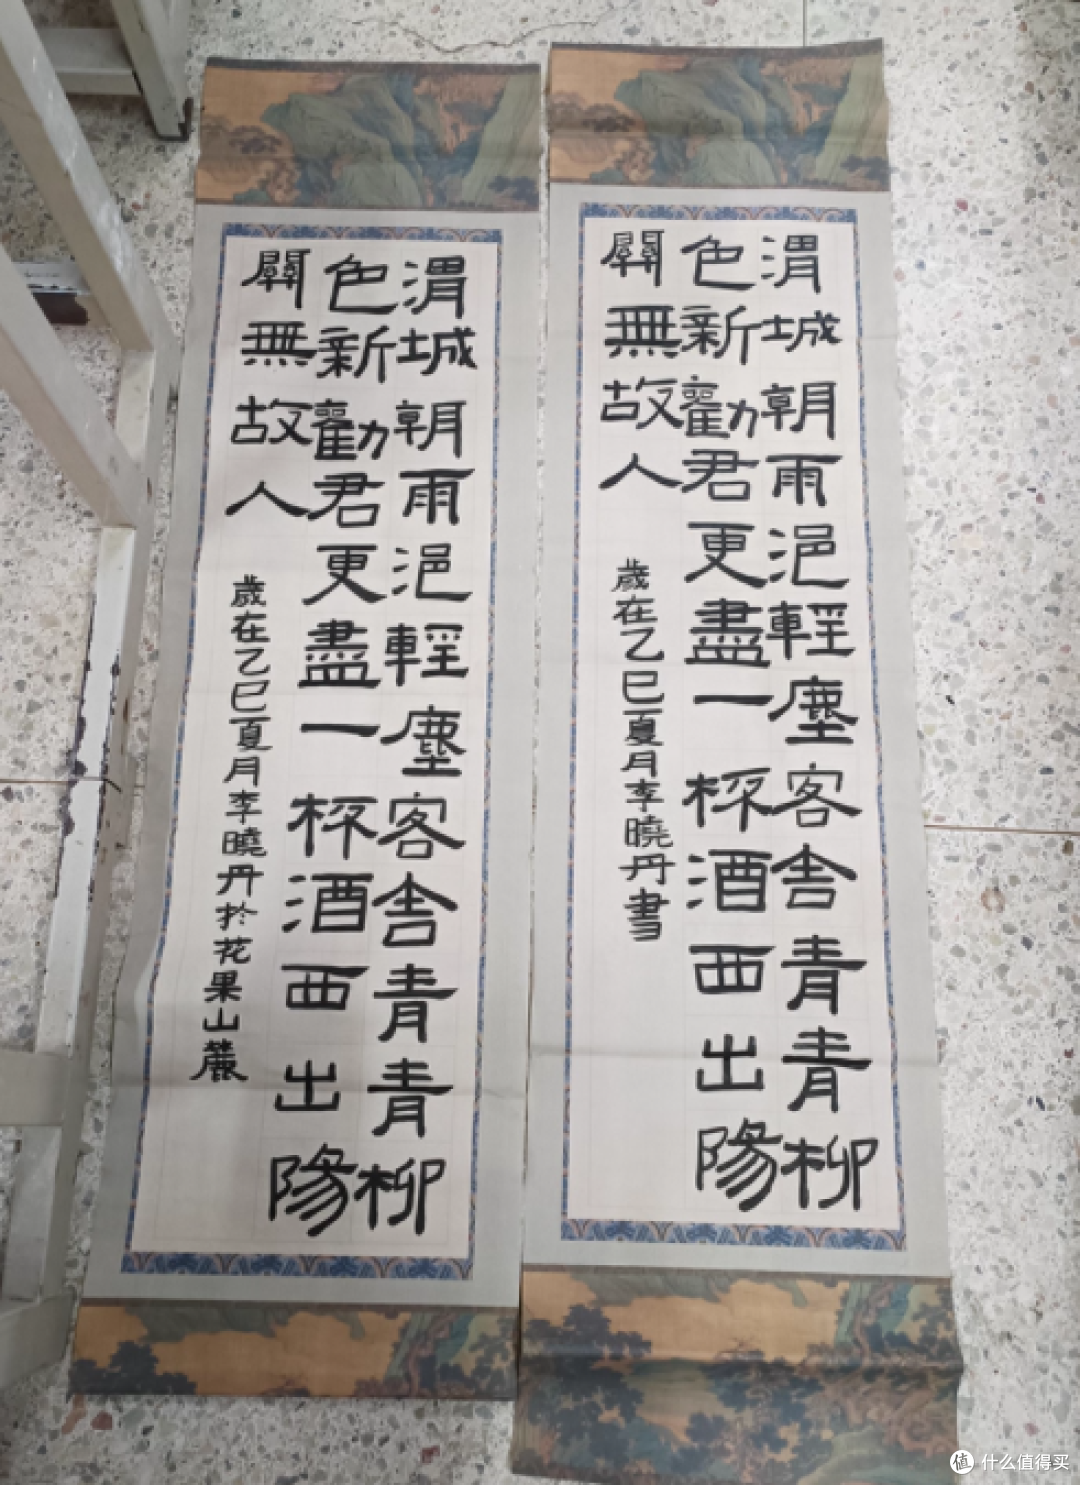 渭城朝雨浥輕塵客舍青青柳
色新勸君更盡一杯酒西出陽
關無故人
歲在乙巳夏月李曉丹書
渭城朝雨浥輕塵客舍青青柳
色新勸君更盡一杯酒西出陽
關無故人
歲在乙巳夏月李曉丹於花果山麓
值 什么值得买